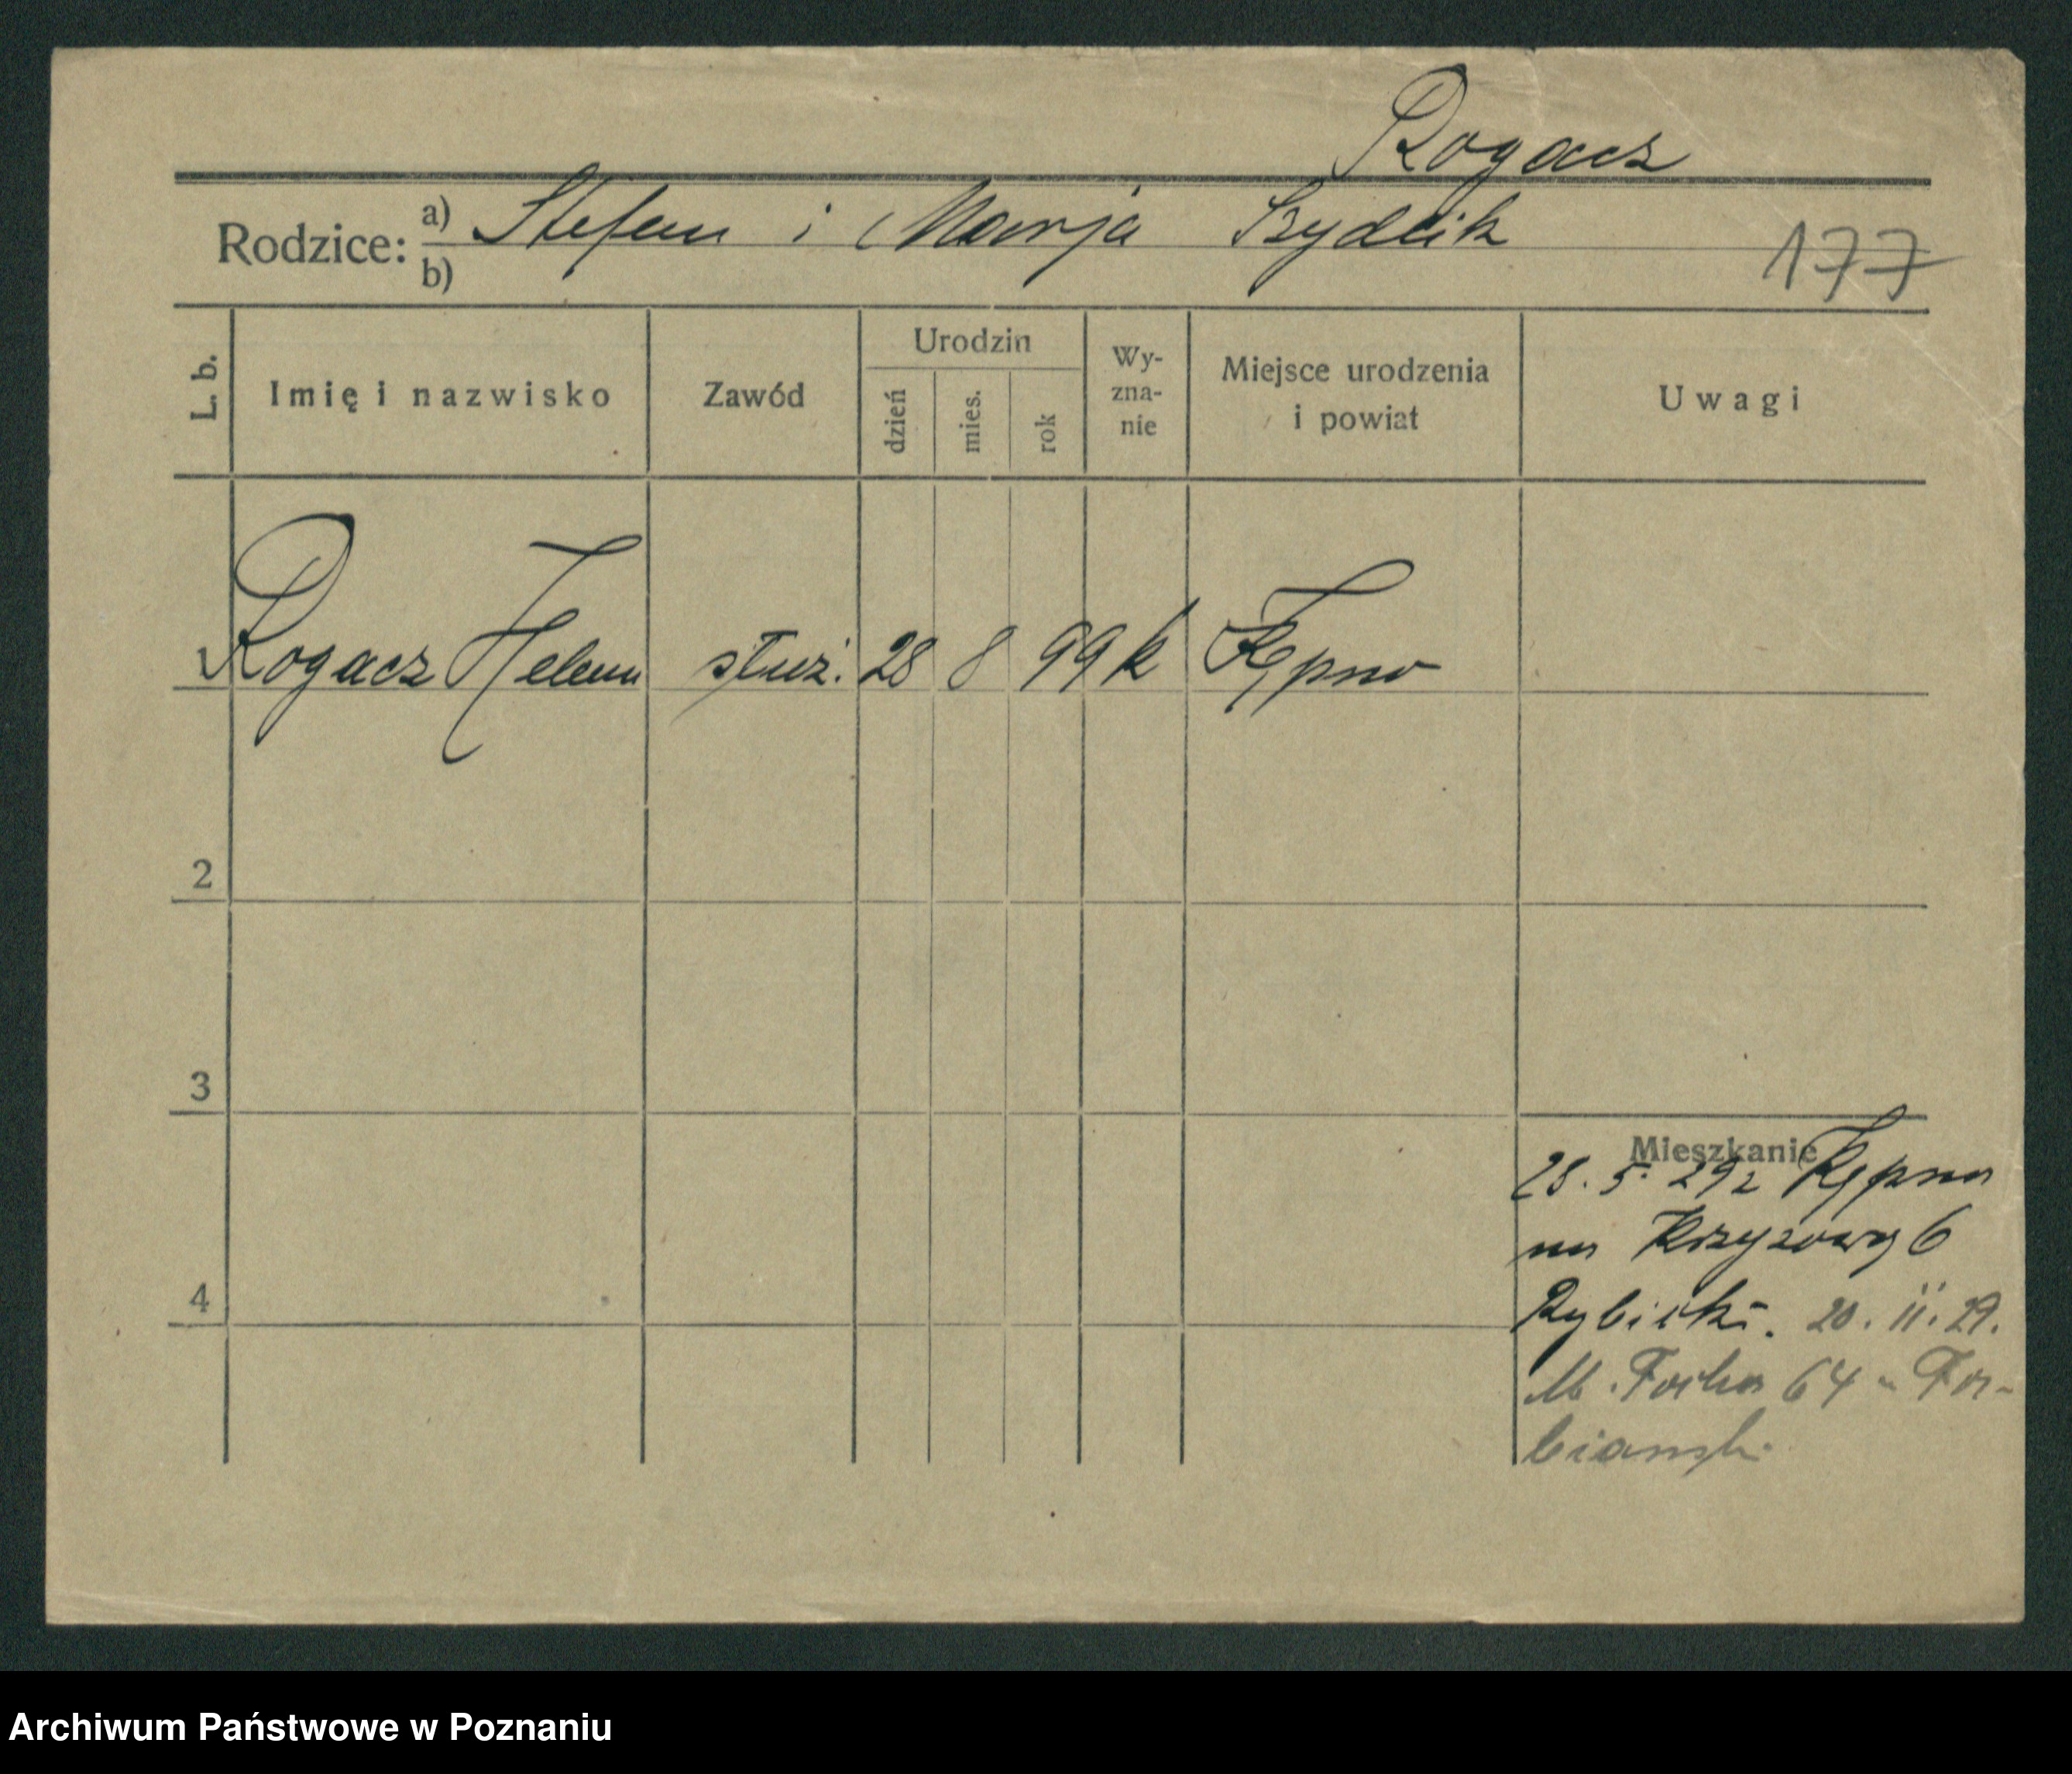 Rogacz
Rodzice: a) Stefan i Marja Szydlik
b)
177
L. b. Imię i nazwisko Zawód Urodzin dzień mies. rok Wy-zna-nie Miejsce urodzenia i powiat Uwagi
1 Rogacz Helena służ. 28 8 99 k Kępno
2
3
4
Mieszkanie
28. 5. 29 z Kępna
na Krzyżową 6
Rybicki. 20. 11. 29.
M. Focha 64 - Fa-
bianski
Archiwum Państwowe w Poznaniu